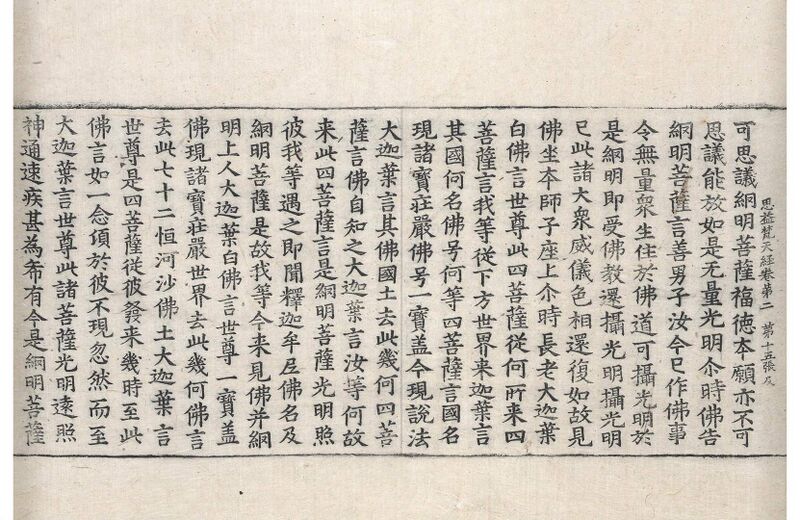 思益梵天經卷第二 第十五張
可思議網明菩薩福德本願亦不可
思議能放如是无量光明尒時佛告
網明菩薩言善男子汝今已作佛事
令無量衆生住於佛道可攝光明於
是網明即受佛教還攝光明攝光明
已此諸大衆威儀色相還復如故見
佛坐本師子座上尒時長老大迦葉
白佛言世尊此四菩薩從何所来四
菩薩言我等從下方世界来迦葉言
其國何名佛号何等四菩薩言國名
現諸寶莊嚴佛号一寶盖今現說法
大迦葉言其佛國土去此幾何四菩
薩言佛自知之大迦葉言汝等何故
来此四菩薩言是網明菩薩光明照
彼我等遇之即聞釋迦牟尼佛名及
網明菩薩是故我等今来見佛并網
明上人大迦葉白佛言世尊一寶盖
佛現諸寶莊嚴世界去此幾何佛言
去此七十二恒河沙佛土大迦葉言
世尊是四菩薩從彼發来幾時至此
佛言如一念頃於彼不現忽然而至
大迦葉言世尊此諸菩薩光明遠照
神通速疾甚為希有今是網明菩薩